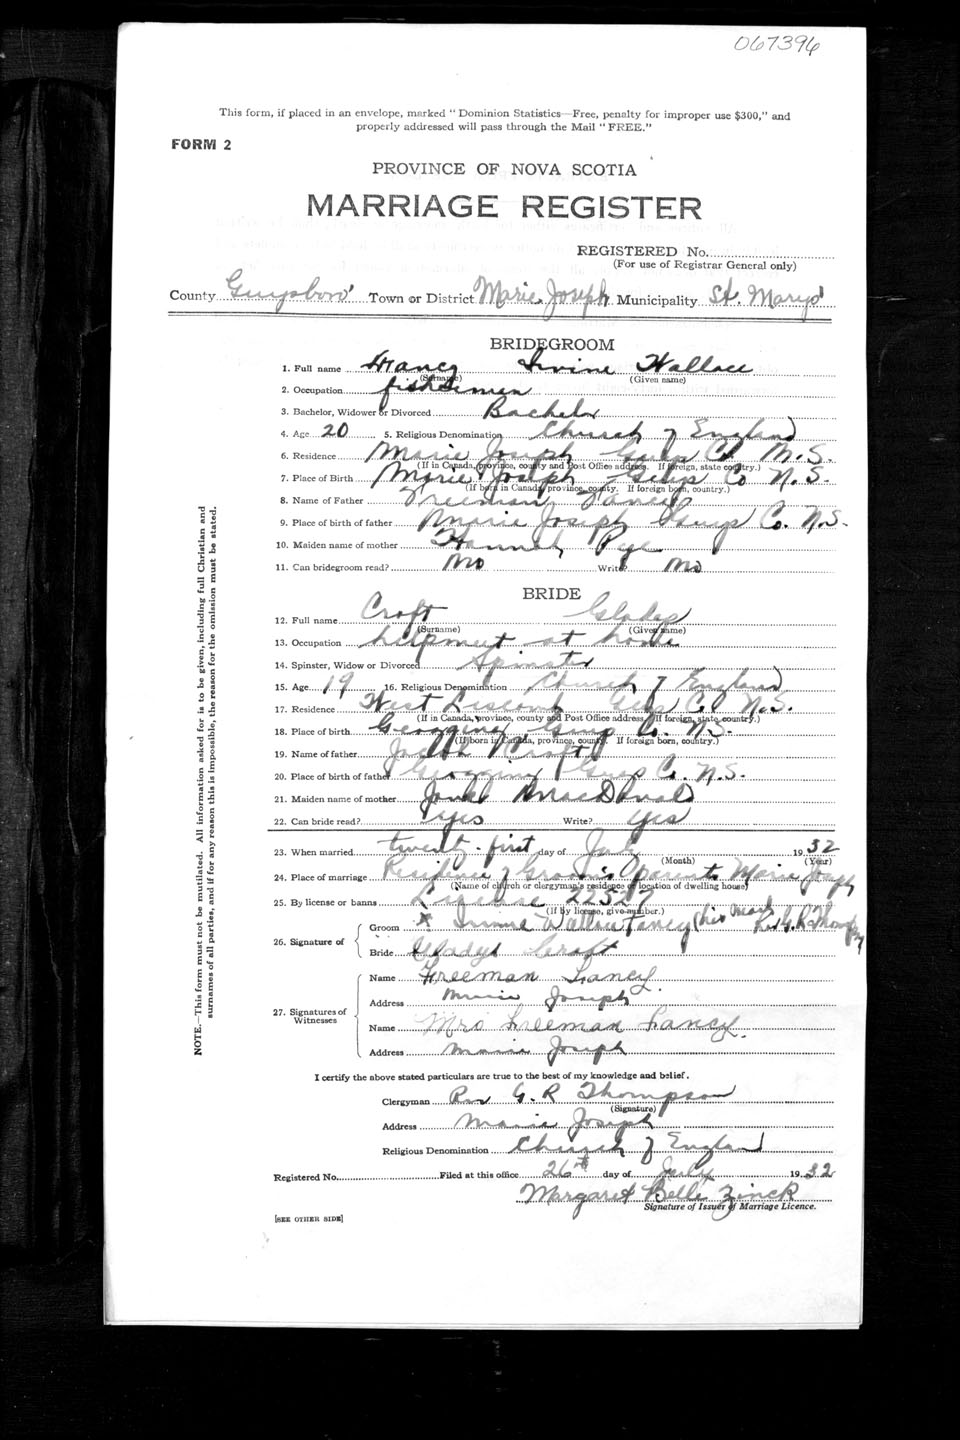 067396
This form, if placed in an envelope, marked "Dominion Statistics—Free, penalty for improper use $300," and
properly addressed will pass through the Mail "FREE."
FORM 2
PROVINCE OF NOVA SCOTIA
MARRIAGE REGISTER
REGISTERED No.
(For use of Registrar General only)
County Guysboro' Town or District Marie Joseph Municipality St. Marys'
BRIDEGROOM
1. Full name Irvine Wallace
(Surname) (Given name)
2. Occupation fishermen
3. Bachelor, Widower or Divorced Bachelor
4. Age 20 5. Religious Denomination Church of England
6. Residence Marie Joseph Guys Co N.S.
(If in Canada, province, county and Post Office address. If foreign, state country.)
7. Place of Birth Marie Joseph Guys Co N.S.
(If born in Canada, province, county. If foreign born, country.)
8. Name of Father Freeman
9. Place of birth of father Marie Joseph Guys Co. N.S.
10. Maiden name of mother Hannah Pye
11. Can bridegroom read? No Write? No
BRIDE
12. Full name Croft Gladys
(Surname) (Given name)
13. Occupation helpmeet at home
14. Spinster, Widow or Divorced Spinster
15. Age 19 16. Religious Denomination Church of England
17. Residence West Liscomb Guys Co N.S.
(If in Canada, province, county and Post Office address. If foreign, state country.)
18. Place of birth Guys Co. N.S.
(If born in Canada, province, county. If foreign born, country.)
19. Name of father Joseph Croft
20. Place of birth of father Guys Co. N.S.
21. Maiden name of mother MacDonald
22. Can bride read? Yes Write? Yes
23. When married twenty-first day of July 1932
(Month) (Year)
24. Place of marriage Residence of Groom's parents Marie Joseph
(Name of church or clergyman's residence or location of dwelling house)
25. By license or banns License 22527
(If by license, give number.)
26. Signature of
Groom x Irvine Wallace (his mark Rev G.R. Thompson
Bride Gladys Croft
27. Signatures of Witnesses
Name Freeman Lancy.
Address Marie Joseph
Name Mrs Freeman Lancy.
Address Marie Joseph
I certify the above stated particulars are true to the best of my knowledge and belief.
Clergyman Rev G. R Thompson
(Signature)
Address Marie Joseph
Religious Denomination Church of England
Registered No. Filed at this office 26th day of July 1932
Margaret Belle Zinck
Signature of Issuer of Marriage Licence.
[SEE OTHER SIDE]
NOTE.—This form must not be mutilated. All information asked for is to be given, including full Christian and
surnames of all parties, and if for any reason this is impossible, the reason for the omission must be stated.